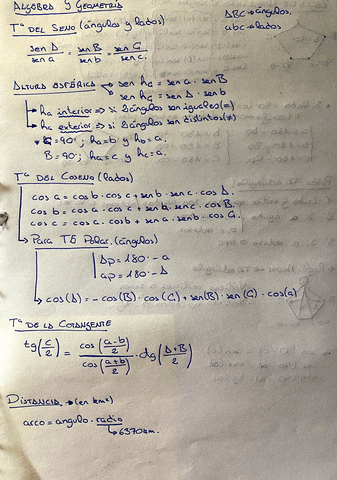 ALGEBRA Y GEOMETRÍA
ABC → ángulos.
abc → lados
Tª DEL SENO (ángulos y lados)
sen A / sen a = sen B / sen b = sen C / sen c.
ALTURA ESFÉRICA → sen ha = sen a · sen B
sen hc = sen A · sen b
→ ha interior ⇒ si 2 ángulos son iguales (=)
→ ha exterior ⇒ si 2 ángulos son distintos (≠)
C = 90°; ha = b y hb = a.
B = 90°; ha = c y hc = a.
Tª DEL COSENO (lados)
cos a = cos b · cos c + sen b · sen c · cos A.
cos b = cos a · cos c + sen a · sen c · cos B.
cos c = cos a · cos b + sen a · sen b · cos C.
→ PARA TE POLAR. (ángulos)
Ap = 180 - a
ap = 180 - A
→ cos(A) = - cos(B) · cos(C) + sen(B) · sen(C) · cos(a)
Tª DE LA COTANGENTE
tg(c/2) = cos((a-b)/2) / cos((a+b)/2) ·((A+B)/2)
DISTANCIA → (en km)
arco = angulo · radio
→ 6370 km.